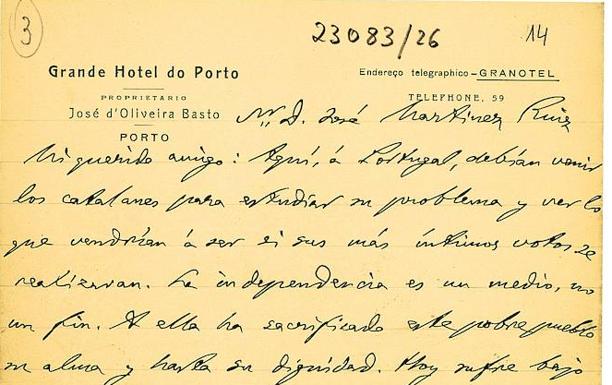 3
23083/26
14
Grande Hotel do Porto
PROPRIETARIO
José d'Oliveira Basto
PORTO
Endereço telegraphico – GRANOTEL
TELEPHONE, 59
D. José Martinez Ruiz
Mi querido amigo: Aquí, á Portugal, debían venir
los catalanes para estudiar su problema y ver lo
que vendrían á ser si sus más íntimos votos se
realizaran. La independencia es un medio, no
un fin. A ella ha sacrificado este pobre pueblo
su alma y hasta su dignidad. Hoy sufre bajo